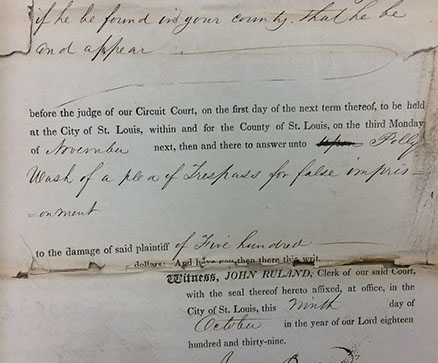 if he be found in your county, that he be
and appear
before the judge of our Circuit Court, on the first day of the next term thereof, to be held
at the City of St. Louis, within and for the County of St. Louis, on the third Monday
of November next, then and there to answer unto Polly
Wash of a plea of Trespass for false impris-
=onment
to the damage of said plaintiff of Five hundred
dollars: And have you then there this writ.
Witness, JOHN RULAND, Clerk of our said Court,
with the seal thereof hereto affixed, at office, in the
City of St. Louis, this Ninth day of
October in the year of our Lord eighteen
hundred and thirty-nine.